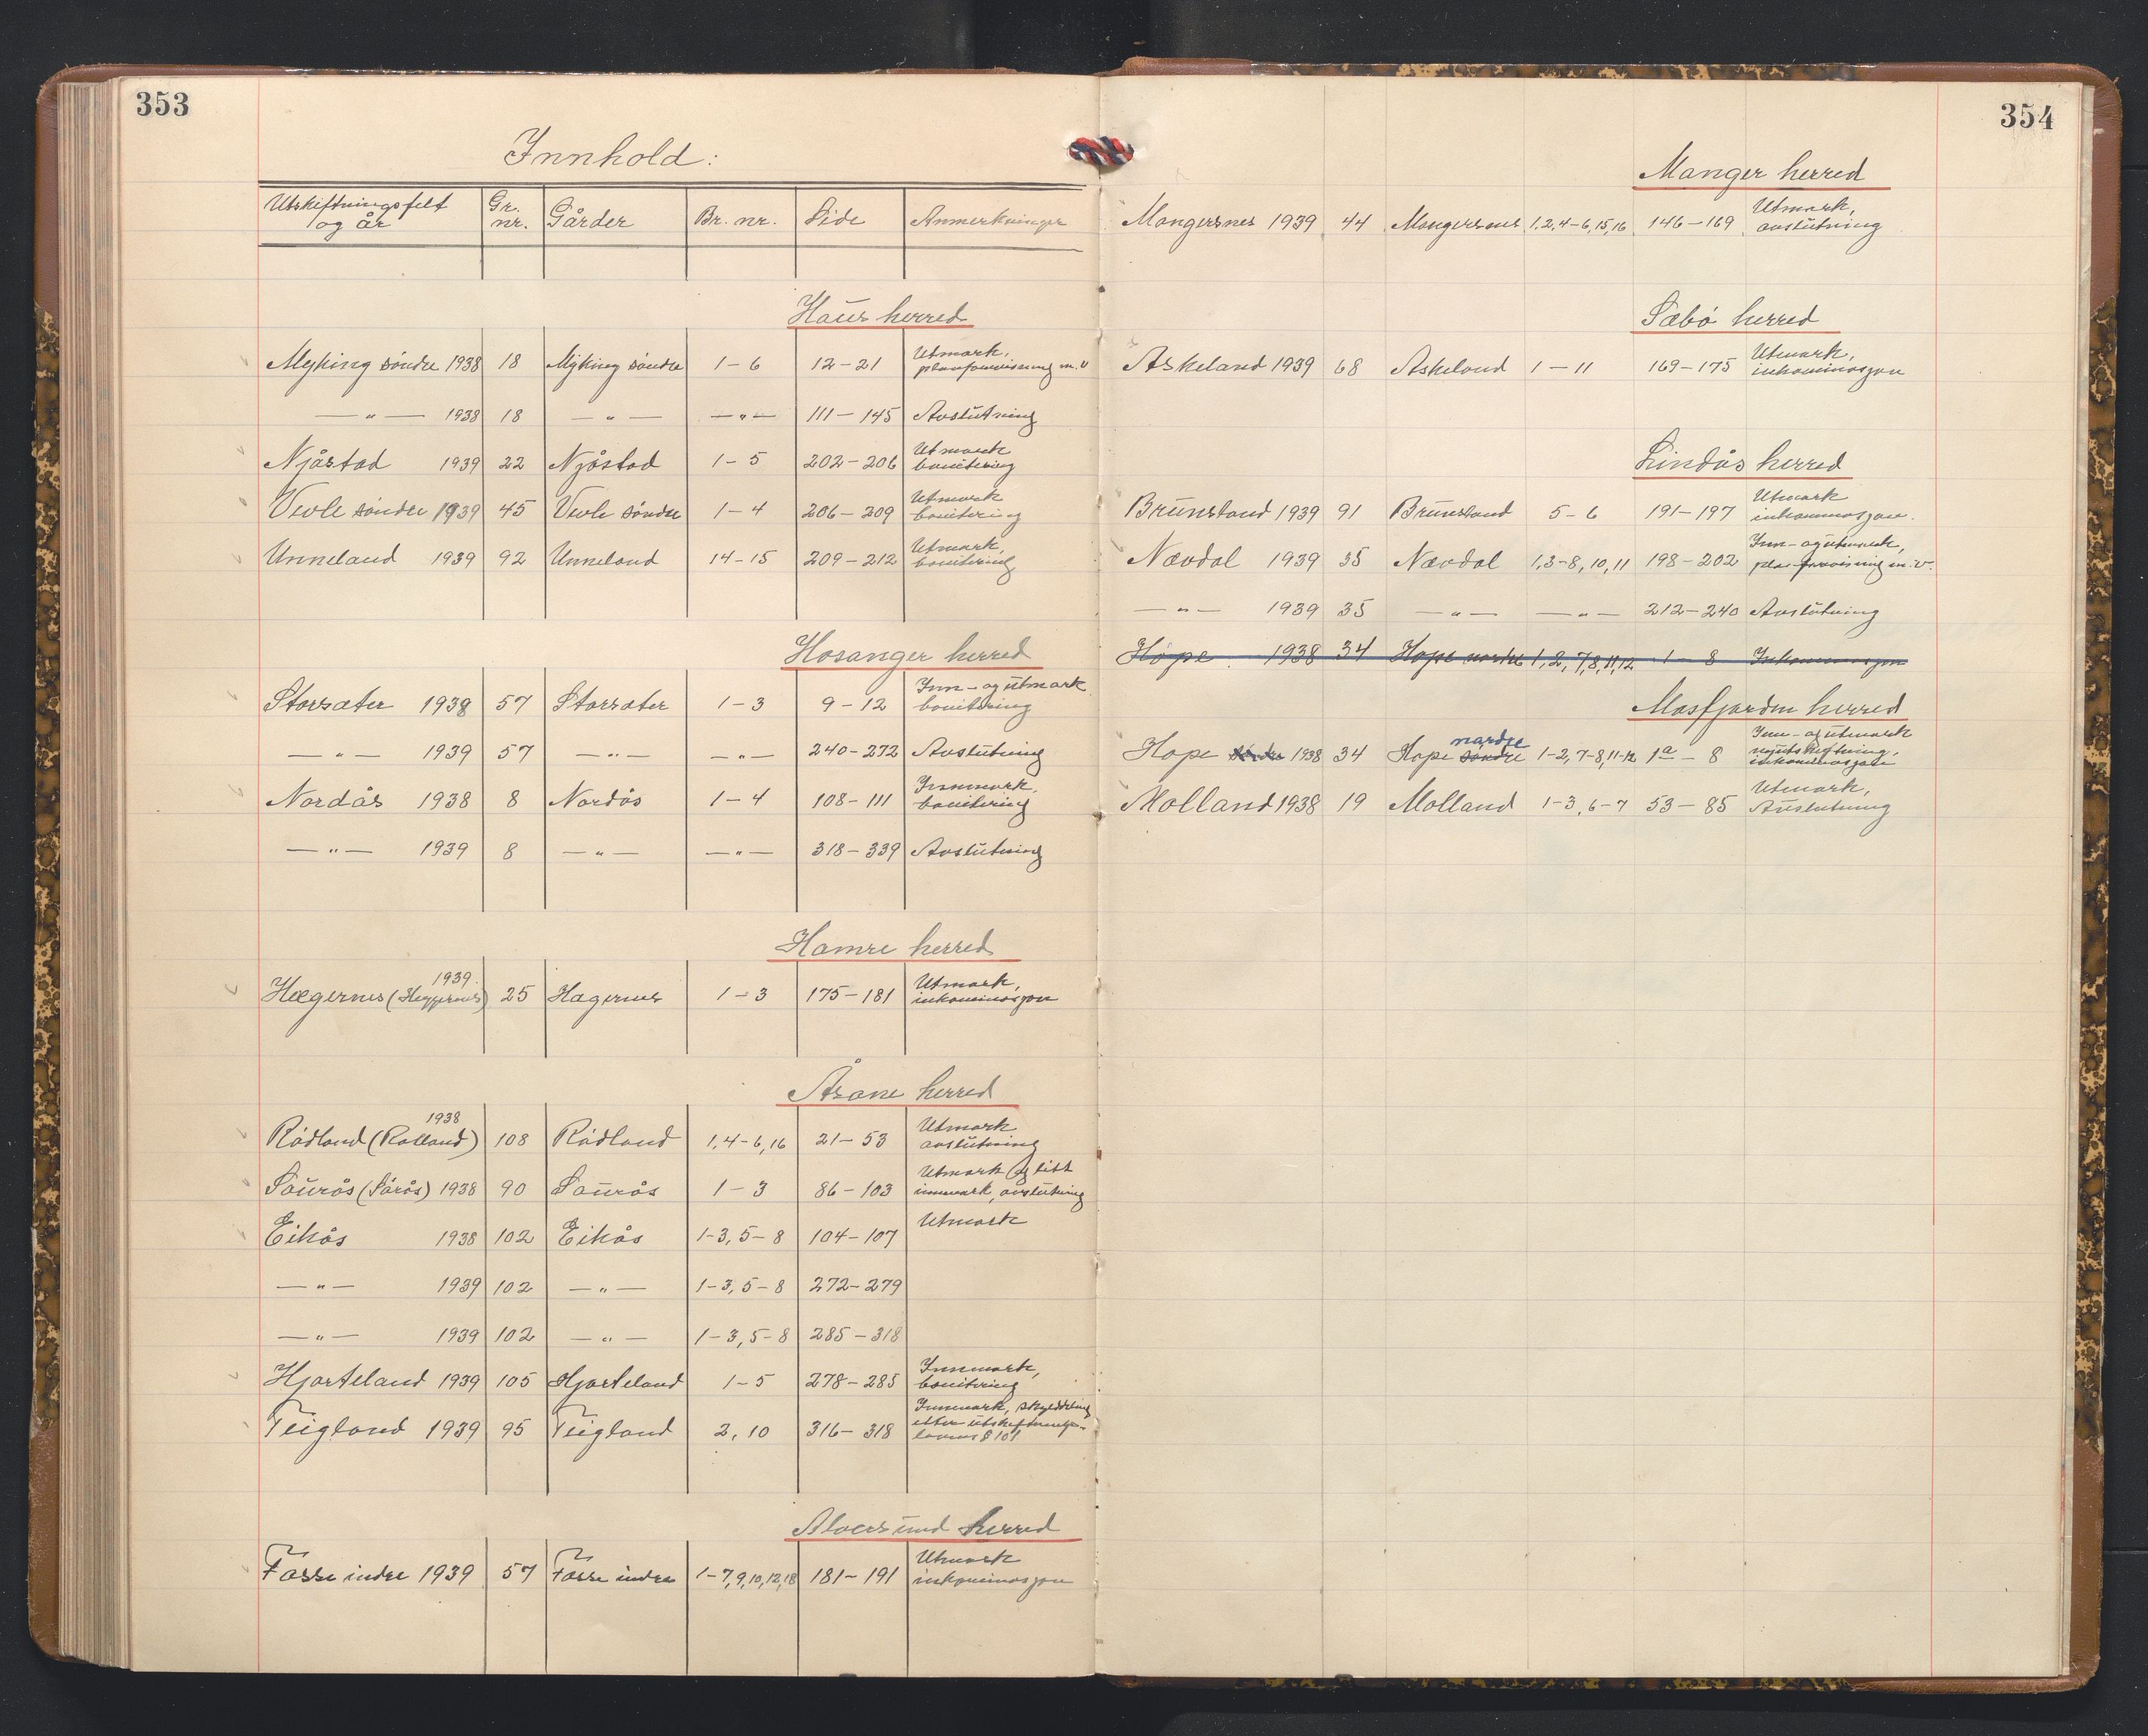 353
Innhold:
Utskiftningsfelt og år Gr. nr. Gårder Br. nr. Side Anmerkninger
Haus herred
Myking söndre 1938 18 Myking söndre 1-6 12-21 Utmark, planforevisning m.v
—"— 1938 18 —"— —"— 111-145 Avslutning
Njåstad 1939 22 Njåstad 1-5 202-206 Utmark bonitering
Vevle söndre 1939 45 Vevle söndre 1-4 206-209 Utmark bonitering
Unneland 1939 92 Unneland 14-15 209-212 Utmark, bonitering
Hosanger herred
Storsæter 1938 57 Storsæter 1-3 9-12 Inn- og utmark bonitering
—"— 1939 57 —"— —"— 240-272 Avslutning
Nordås 1938 8 Nordås 1-4 108-111 Innmark, bonitering
—"— 1939 8 —"— —"— 318-339 Avslutning
Hamre herred
1939
Hægernes (Heggernes) 25 Hægernes 1-3 175-181 Utmark, inkaminasjon
Åsane herred
1938
Rödland (Rolland) 108 Rödland 1,4-6,16 21-53 Utmark avslutning
Saurås (Sårås) 1938 90 Saurås 1-3 86-103 Utmark og litt innmark, avslutning
Eikås 1938 102 Eikås 1-3, 5-8 104-107 Utmark
—"— 1939 102 —"— 1-3, 5-8 272-279
—"— 1939 102 —"— 1-3, 5-8 285-318
Hjorteland 1939 105 Hjorteland 1-5 278-285 Innmark, bonitering
Teigland 1939 95 Teigland 2, 10 316-318 Innmark, skylddeling etter utskiftnings- lovens § 101
Alversund herred
Fosse indre 1939 57 Fosse indre 1-7,9,10,12,18 181-191 Utmark inkaminasjon
354
Manger herred
Mangersnes 1939 44 Mangersnes 1,2,4-6,15,16 146-169 Utmark, avslutning
Sæbö herred
Askeland 1939 68 Askeland 1-11 169-175 Utmark, inkaminasjon
Lindås herred
Brunstand 1939 91 Brunstand 5-6 191-197 Utmark inkaminasjon.
Nævdal 1939 35 Nævdal 1,3-8,10,11 198-202 Inn- og utmark, planforevisning m.v.
—"— 1939 35 —"— —"— 212-240 Avslutning
Hope 1938 34 Hope nordre 1,2,7,8,11,12 1-8 Inkaminasjon
Masfjorden herred
Hope söndre 1938 34 Hope söndre nordre 1-2,7-8,11-12 1a-8 Inn- og utmark inkaminasjon
Molland 1938 19 Molland 1-3, 6-7 53-85 Utmark, Avslutning